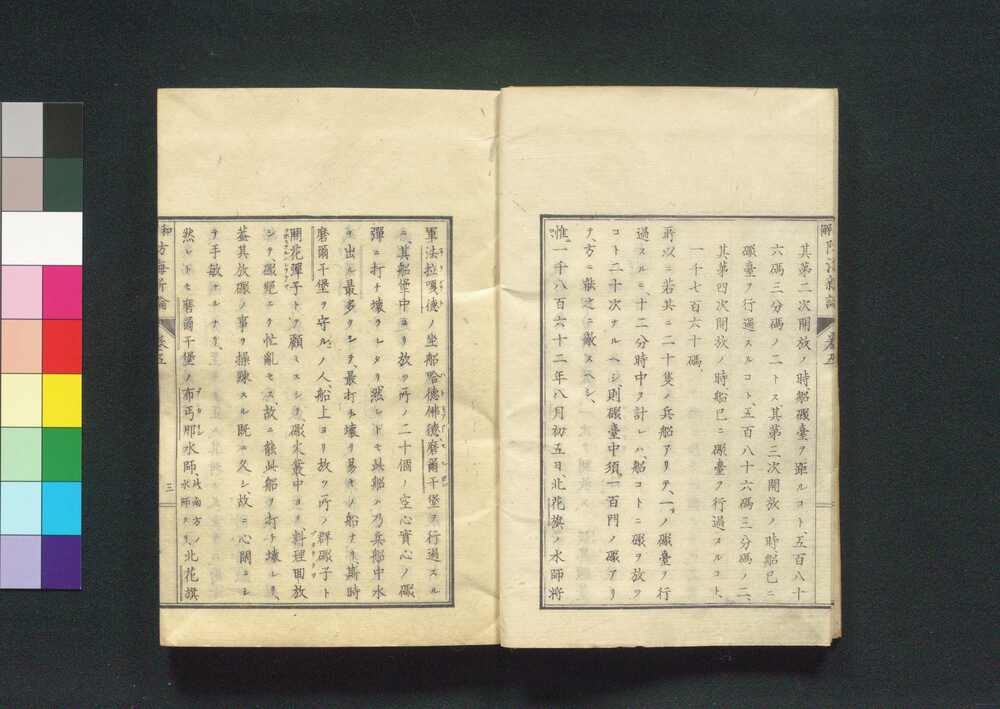 其第二次開放ノ時、船礮臺ヲ距ルコト、五百八十
六碼三分碼ノ二トス其第三次開放ノ時、船已ニ
礮臺ヲ行過スルコト、五百八十六碼三分碼ノ二、
其第四次開放ノ時、船已ニ礮臺ヲ行過スルコト、
一千七百六十碼、
所以ニ若其二十隻ノ兵船アリテ、一ノ礮臺ヲ行
過スルニ、十二分時中ヲ計レハ、船コトニ礮ヲ放ツ
コト二十次ナルヘシ、則礮臺中須一百門ノ礮アリ
テ、方ニ
惟一千八百六十二年八月初五日、北花旗ノ水師將
軍法拉嘎德ノ坐船哈德佛德、磨爾干堡ヲ行過スル
ニ、其船堡中ヨリ放ツ所ノ二十個ノ空心實心ノ礮
彈ニ打チ壊ラレタリ然レトモ此船ハ乃兵船中水
ヨリ出ル最多クシテ、最打チ壊リ易キノ船ナリ、斯時
磨爾干堡ヲ守ルノ人、船上ヨリ放ツ所ノ群礮子ト
開花彈子トヲ顧ミスシテ、礮火叢中ヨリ料理回放
シテ、礮絕ニヲ忙亂セス、故ニ能此船ヲ打チ壊レリ、
蓋其放礮ノ事ヲ操錬スル既ニ久シ故ニ心閑ニシ
テ手敏ナルナリ、
然レトモ磨爾干堡ノ布丐那水師、此南方ノ水師ナリ、北花旗
巻五
三